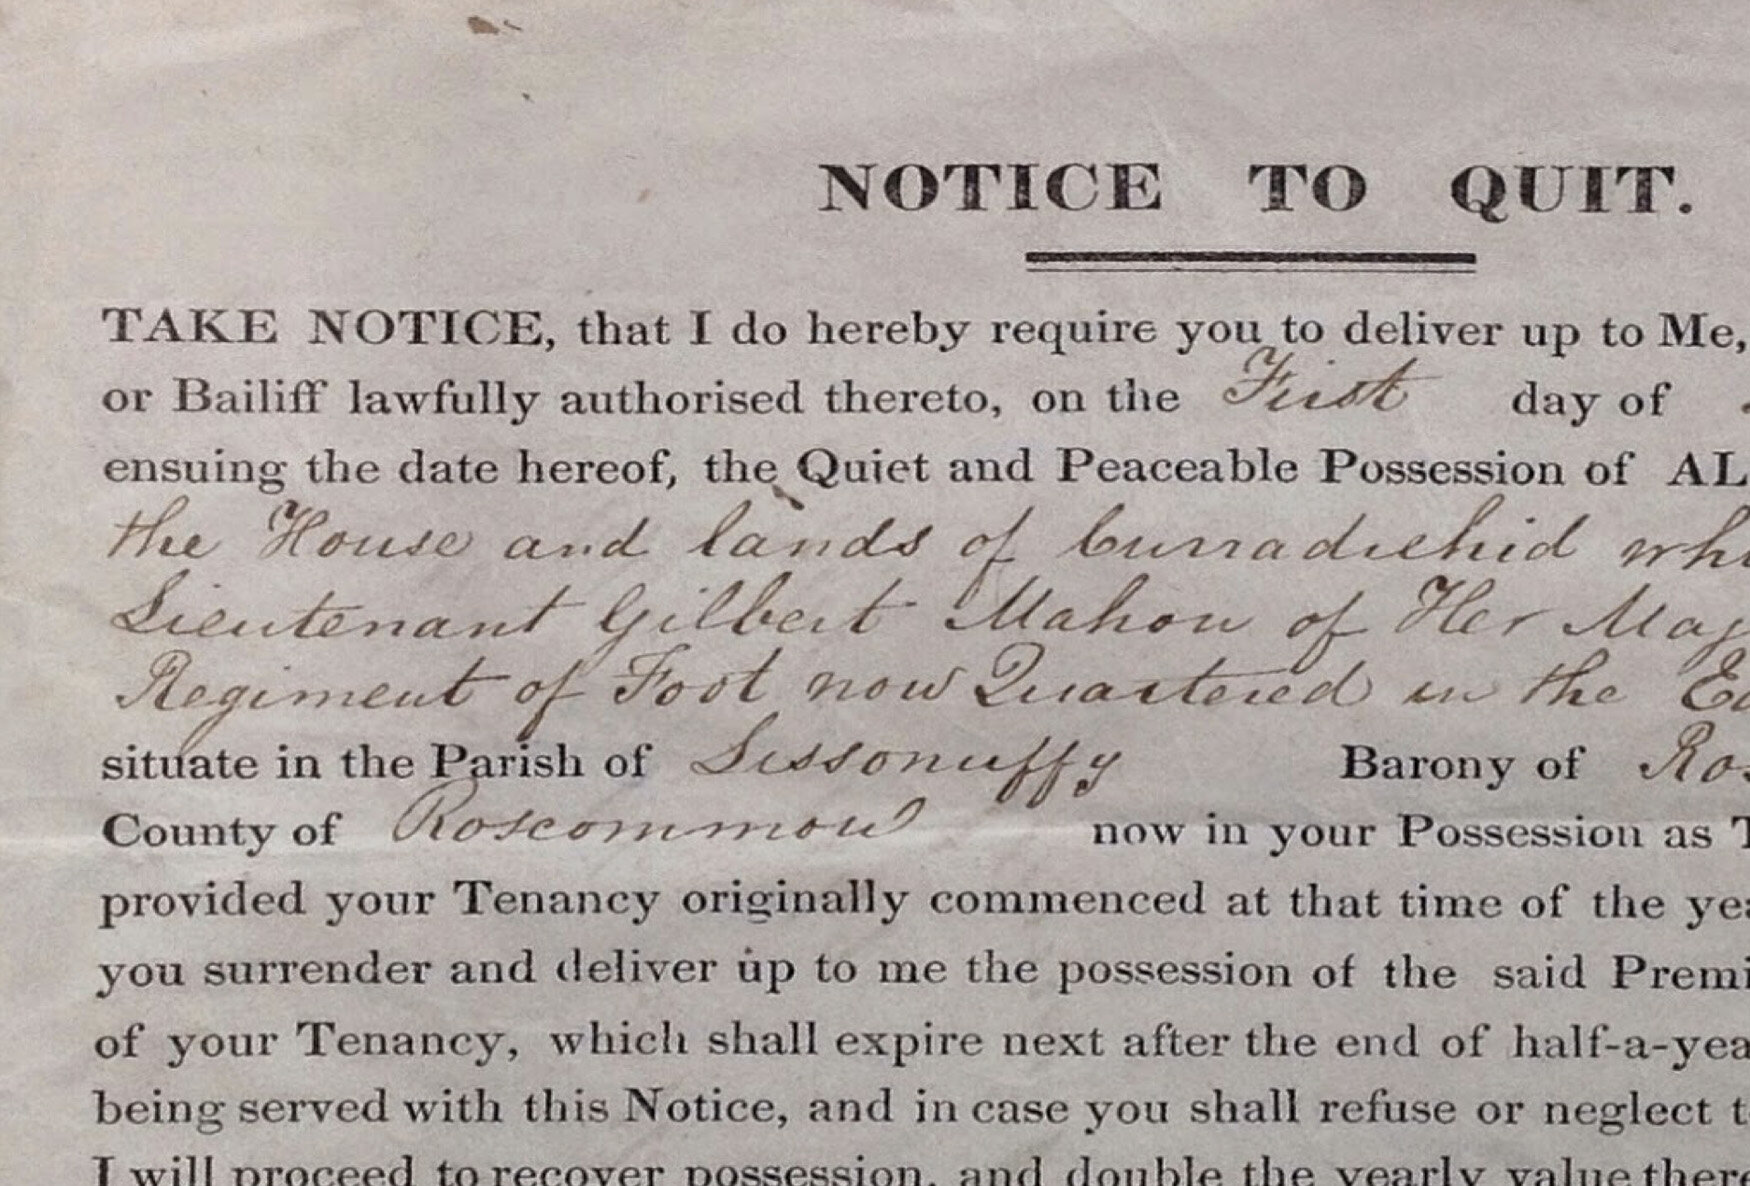 NOTICE TO QUIT.
TAKE NOTICE, that I do hereby require you to deliver up to Me,
or Bailiff lawfully authorised thereto, on the First day of
ensuing the date hereof, the Quiet and Peaceable Possession of AL
the House and lands of Curradrehid whi
Lieutenant Gilbert Mahon of Her Maj
Regiment of Foot now Quartered in the Ea
situate in the Parish of Lissonuffy Barony of Ros
County of Roscommon now in your Possession as T
provided your Tenancy originally commenced at that time of the yea
you surrender and deliver up to me the possession of the said Premi
of your Tenancy, which shall expire next after the end of half-a-yea
being served with this Notice, and in case you shall refuse or neglect t
I will proceed to recover possession, and double the yearly value there